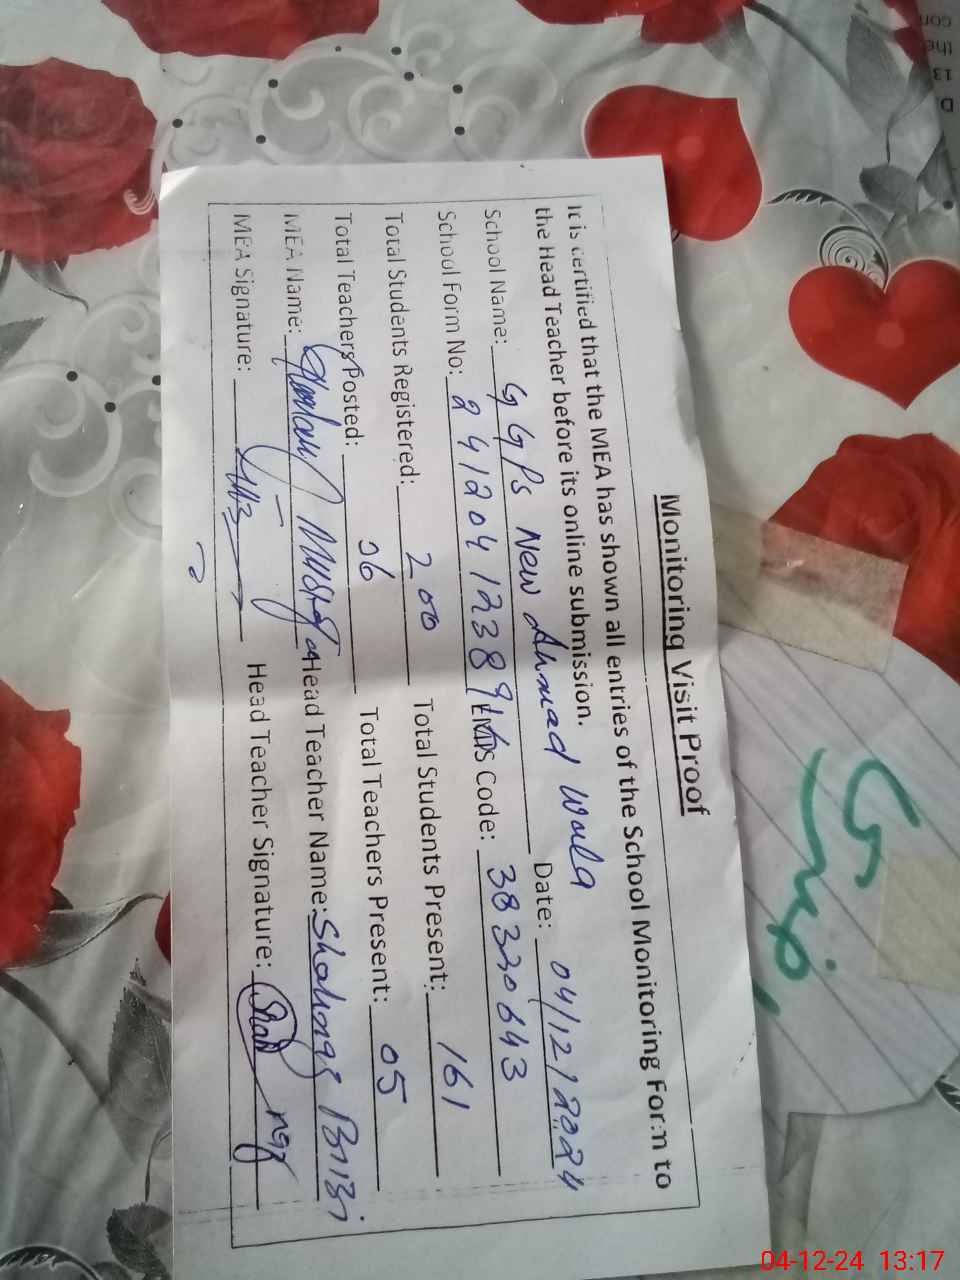 Monitoring Visit Proof
It is certified that the MEA has shown all entries of the School Monitoring Form to
the Head Teacher before its online submission.
School Name: GGPS New Ahmad Wala Date: 04/12/2024
School Form No: 2412041238916 EMIS Code: 38320643
Total Students Registered: 200 Total Students Present: 161
Total Teachers Posted: 06 Total Teachers Present: 05
MEA Name: Ghulam Mustafa Head Teacher Name: Shahnaz BiBi
MEA Signature: Head Teacher Signature: Shahnaz
04-12-24 13:17